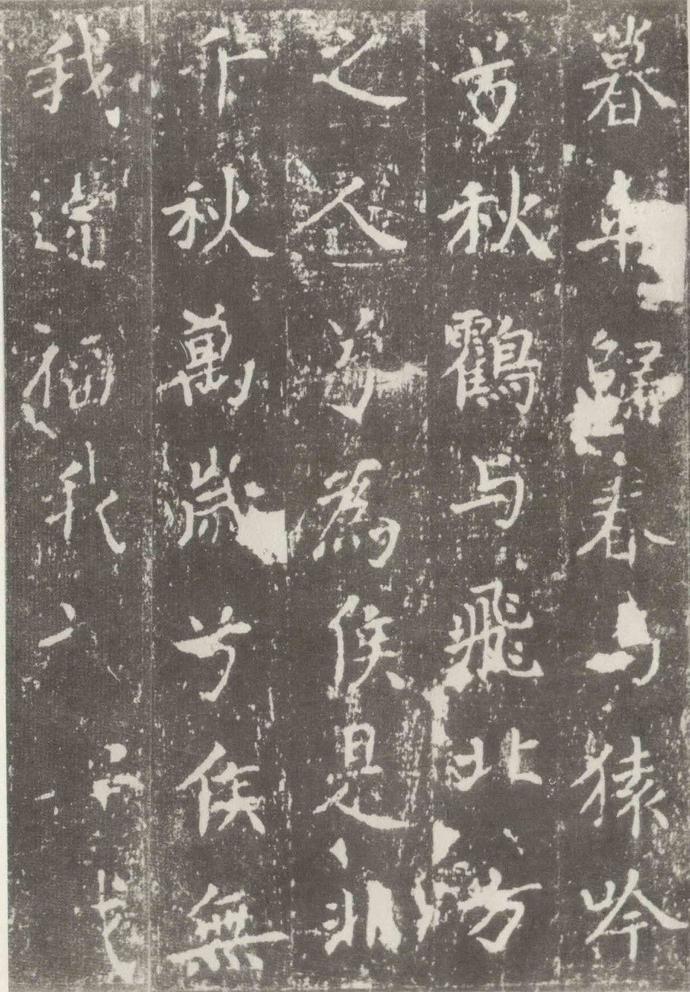 暮来歸春与猿吟
兮秋鸖与飛北方
之人兮為侯是非
千秋萬歲兮侯無
我違福我